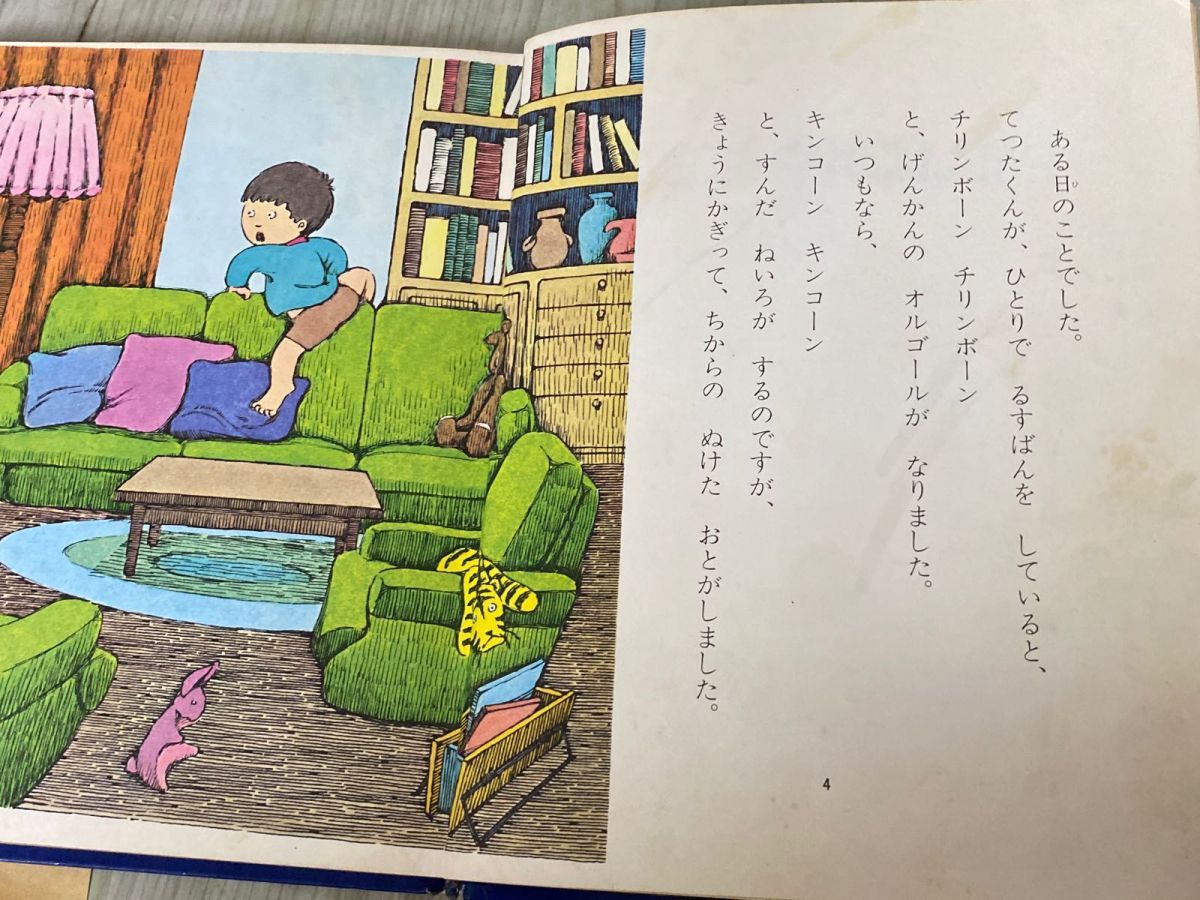 ある日のことでした。
てつたくんが、ひとりで るすばんを していると、
チリンボーン チリンボーン
と、げんかんの オルゴールが なりました。
いつもなら、
キンコーン キンコーン
と、すんだ ねいろが するのですが、
きょうにかぎって、ちからの ぬけた おとがしました。
4